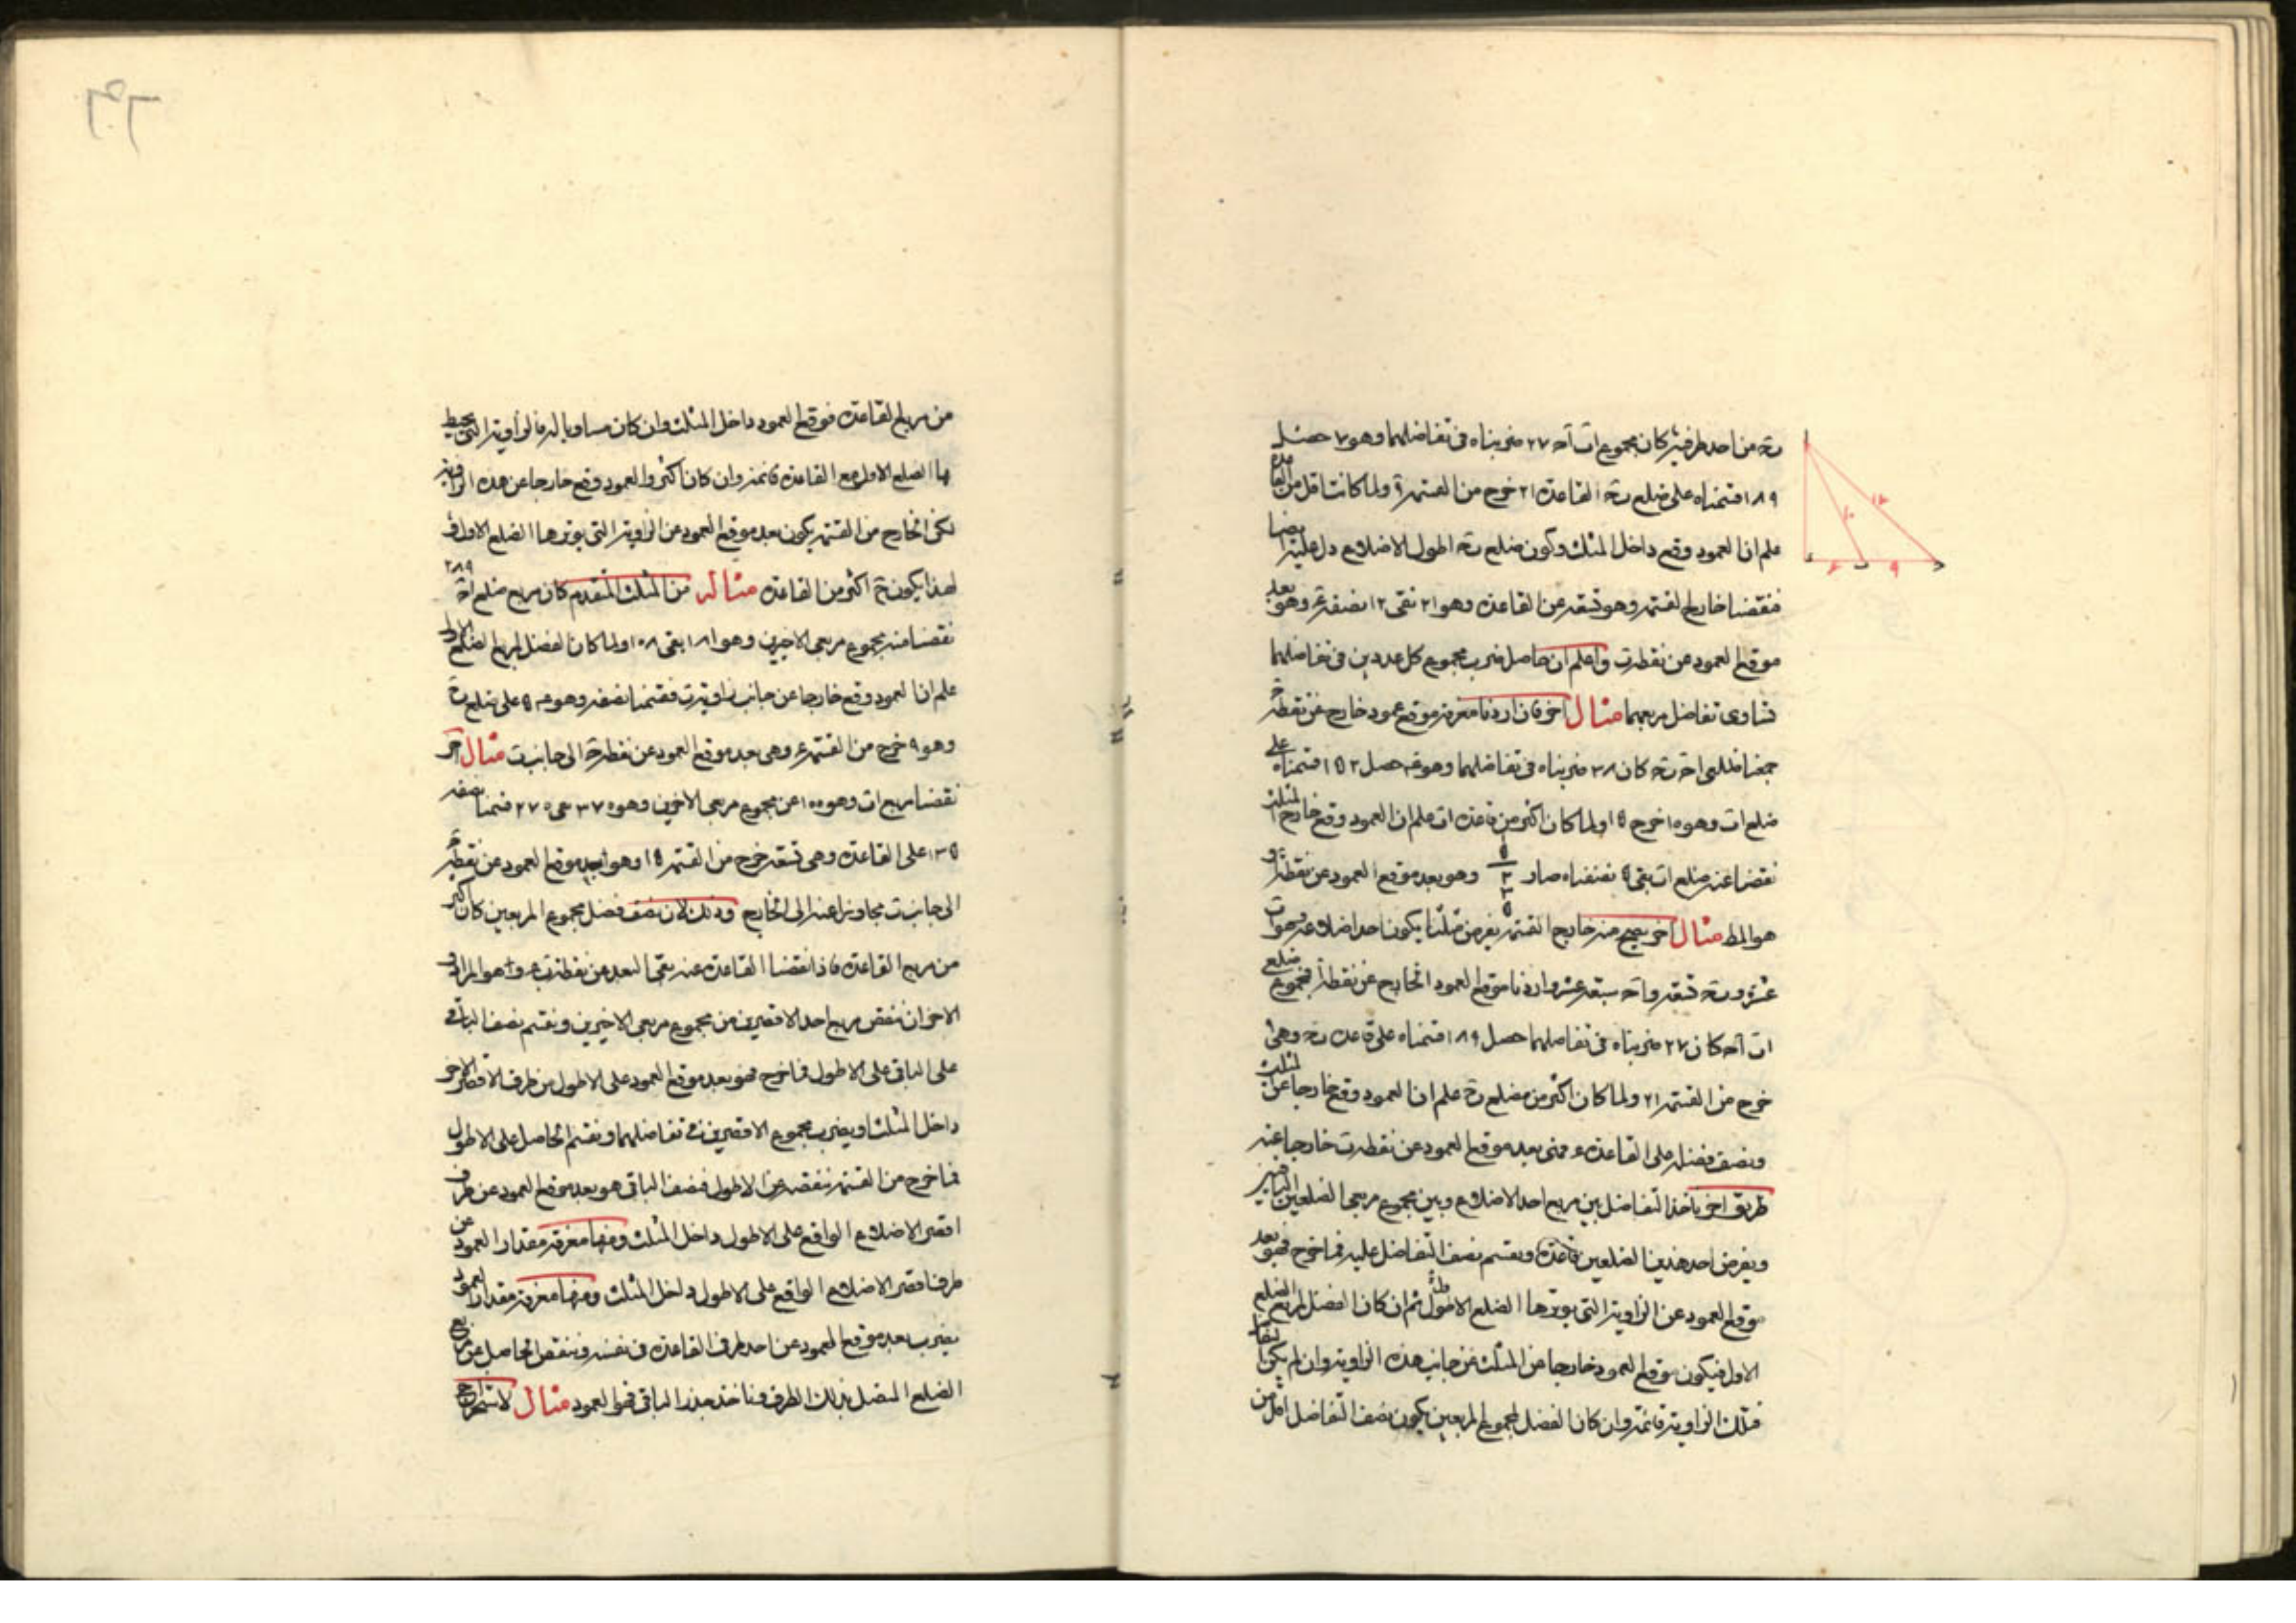 بج من احد طرفيه كان مجموع اب اج ٢٧ ضربناه فى تفاضلهما وهو ٧ حصل
١٨٩ قسمناه على ضلع بج القاعدة ٢١ خرج من القسمة ٩ ولما كانت اقل من القاعدة
علم ان العمود وقع داخل المثلث وكون ضلع بج اطول الاضلاع دل عليه ايضا
فنقصنا خارج القسمة وهو تسعة عن القاعدة وهو ٢١ بقى ١٢ نصفه ٦ وهو بعد
موقع العمود عن نقطة ب واعلم ان حاصل ضرب مجموع كل عددين فى تفاضلهما
تساوى تفاضل مربعيهما مثال اخر فان اردنا معرفة موقع عمود خارج عن نقطة ج
جمعنا ضلعى اج بج كان ٣٨ ضربناه فى تفاضلهما وهو ٤ حصل ١٥٢ قسمناه على
ضلع اب وهو ١٠ خرج ١٥ ولما كان اكثر من قاعدة اب علم ان العمود وقع خارج المثلث
نقصنا عنه ضلع اب بقى ٥ نصفناه صار وهو بعد موقع العمود عن نقطة
هو المط مثال اخر يصح منه خارج القسمة نفرض مثلثا يكون احد اضلاعه وهو اب
عشرة و بج تسعة و اج سبعة عشر واردنا موقع العمود الخارج عن نقطة ا فمجموع ضلع
اب اج كان ٢٧ ضربناه فى تفاضلهما حصل ١٨٩ قسمناه على قاعدة بج وهى ٩
خرج من القسمة ٢١ ولما كان اكثر من ضلع بج علم ان العمود وقع خارجا عن المثلث
ونصف فضله على القاعدة ٦ فهى بعد موقع العمود عن نقطة ب خارجا عنه
طريق اخر ناخذ التفاضل بين مربع احد الاضلاع وبين مجموع مربعى الضلعين الباقيين
ويفرض احد هذين الضلعين قاعدة ونقسم نصف التفاضل عليه فما خرج فهو بعد
موقع العمود عن الزاوية التى يوترها الضلع الاول ثم ان كان الفضل لمربع الضلع
الاول فيكون موقع العمود خارجا من المثلث من جانب هذه الزاوية وان لم يكن
فتلك الزاوية قائمة وان كان الفضل لمجموع المربعين يكون نصف التفاضل اقل من
من مربع القاعدة فوقع العمود داخل المثلث وان كان مساويا له فالزاوية التى يحيط
بها الضلع الاول مع القاعدة قائمة وان كان اكثر والعمود وقع خارجا عن هذه الزاوية
لكن الخارج من القسمة يكون بعد موقع العمود عن الزاوية التى يوترها الضلع الاول
لهذا يكون اكثر من القاعدة مثاله من المثلث المتقدم كان مربع ضلع اج ٢٨٩
نقصنا منه مجموع مربعى الاخيرين وهو ١٨١ بقى ١٠٨ ولما كان الفضل لمربع الضلع الاول
علم ان العمود وقع خارجا عن جانب زاوية ب فقسمنا نصفه وهو ٥٤ على ضلع بج
وهو ٩ خرج من القسمة ٦ وهى بعد موقع العمود عن نقطة الى جانب ب مثال اخر
نقصنا مربع اب وهو ١٠٠ عن مجموع مربعى الاخرين وهو ٣٧٠ بقى ٢٧٠ قسمنا نصفه
١٣٥ على القاعدة وهى تسعة خرج من القسمة ١٥ وهو بعد موقع العمود عن نقطة ج
الى جانب ب مجاوزا عنه الى الخارج وذلك لان نصف فضل مجموع المربعين كان اكثر
من مربع القاعدة فاذا نقصنا القاعدة عنه بقى البعد من نقطة ب ٦ وهو المراد
الاخر ان ننقص مربع احد الاقصرين من مجموع مربعى الاخيرين ونقسم نصف الباقى
على الباقى على الاطول فما خرج فهو بعد موقع العمود على الاطول من طرف الاقصر الاخر
داخل المثلث او يضرب مجموع الاقصرين فى تفاضلهما ونقسم الحاصل على الاطول
فما خرج من القسمة ننقصه من الاطول فنصف الباقى هو بعد موقع العمود عن طرف
اقصر الاضلاع الواقع على الاطول داخل المثلث ومنها معرفة مقدار العمود عن
طرف اقصر الاضلاع الواقع على الاطول داخل المثلث ومنها معرفة مقدار العمود
نضرب بعد موقع العمود عن احد طرفى القاعدة فى نفسه وننقص الحاصل من مربع
الضلع المتصل بذلك الطرف وناخذ جذر الباقى فهو العمود مثال لاستخراج